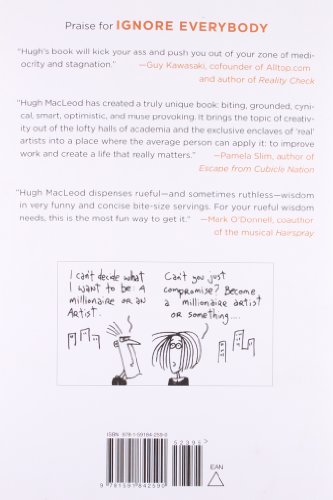 Praise for IGNORE EVERYBODY
"Hugh's book will kick your ass and push you out of your zone of medi-
ocrity and stagnation." —Guy Kawasaki, cofounder of Alltop.com
and author of Reality Check
"Hugh MacLeod has created a truly unique book: biting, grounded, cyni-
cal, smart, optimistic, and muse provoking. It brings the topic of creativ-
ity out of the lofty halls of academia and the exclusive enclaves of 'real'
artists into a place where the average person can apply it: to improve
work and create a life that really matters." —Pamela Slim, author of
Escape from Cubicle Nation
"Hugh MacLeod dispenses rueful—and sometimes ruthless—wisdom
in very funny and concise bite-size servings. For your rueful wisdom
needs, this is the most fun way to get it." —Mark O'Donnell, coauthor
of the musical Hairspray
I can't decide what
I want to be: A
millionaire or an
Artist.
Can't you just
compromise? Become
a millionaire artist
or something....
ISBN 978-1-59184-259-0
52395
EAN
9 781591 842590